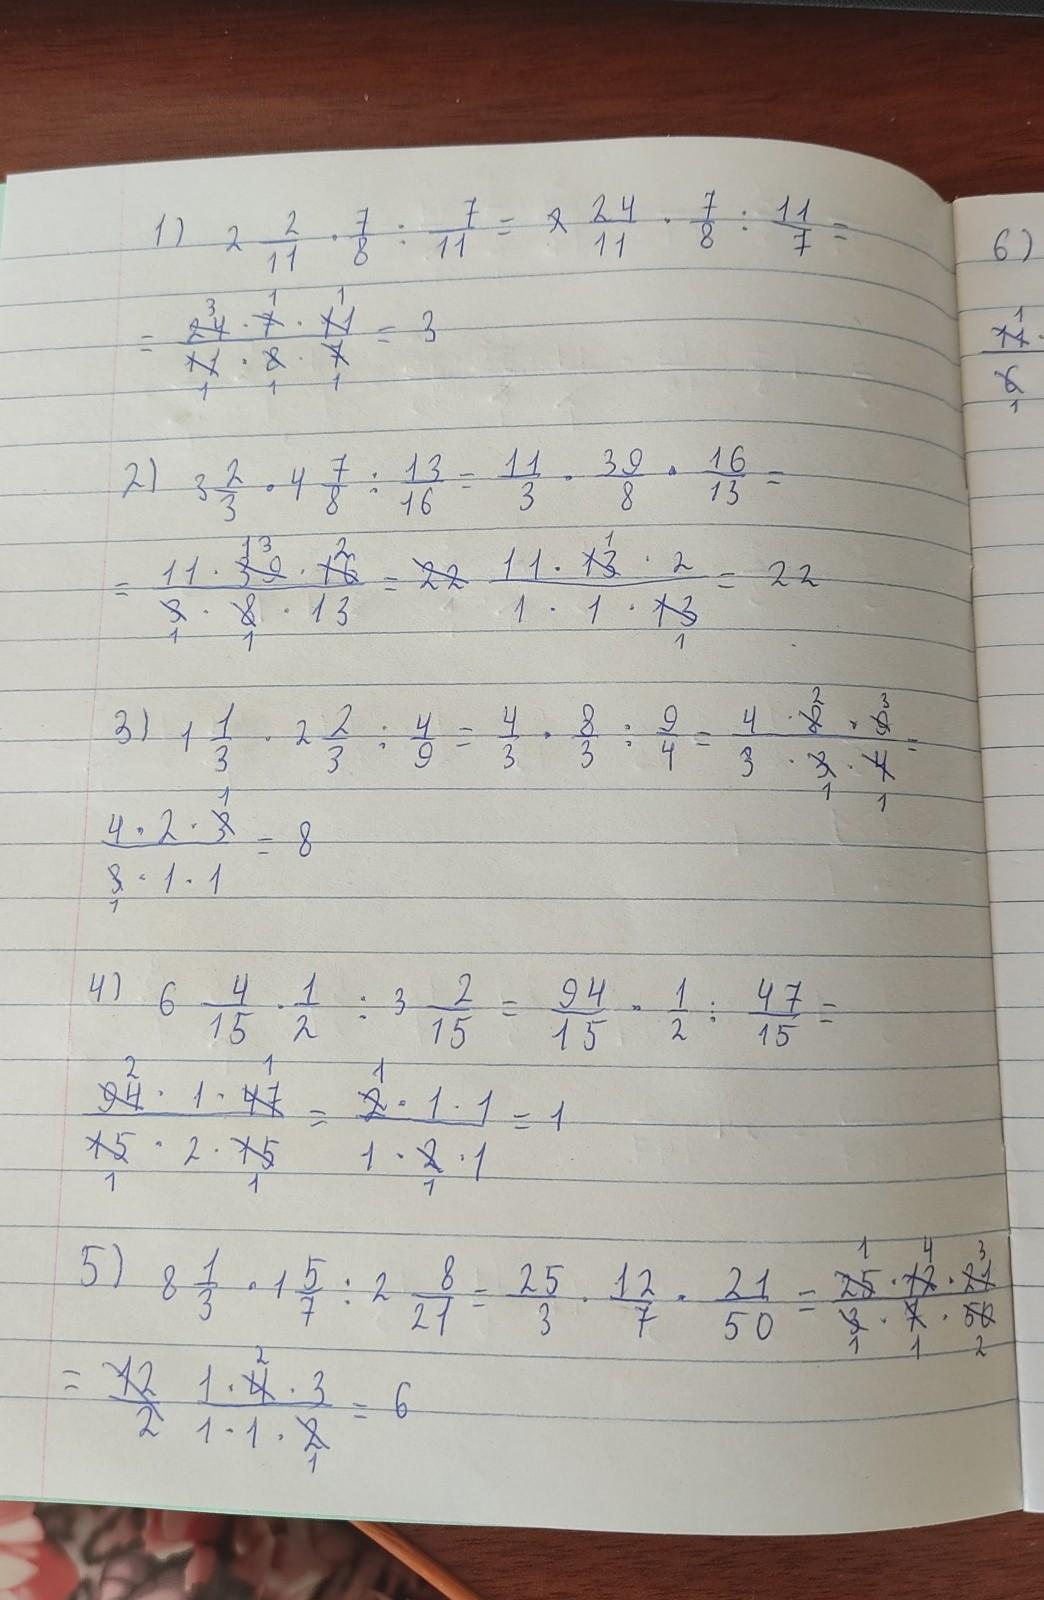 1) 2 2/11 · 7/8 : 7/11 = 24/11 · 7/8 : 11/7 =
= 24 · 7 · 11 / 11 · 8 · 7 = 3
2) 3 2/3 · 4 7/8 : 13/16 = 11/3 · 39/8 · 16/13 =
= 11 · 39 · 16 / 3 · 8 · 13 = 22 11 · 13 · 2 / 1 · 1 · 13 = 22
3) 1 1/3 · 2 2/3 : 4/9 = 4/3 · 8/3 : 9/4 = 4 · 8 · 9 / 3 · 3 · 4 =
4 · 2 · 3 / 3 · 1 · 1 = 8
4) 6 4/15 · 1/2 : 3 2/15 = 94/15 · 1/2 : 47/15 =
94 · 1 · 47 / 15 · 2 · 15 = 2 · 1 · 1 / 1 · 2 · 1 = 1
5) 8 1/3 · 1 5/7 : 2 8/21 = 25/3 · 12/7 · 21/50 = 25 · 12 · 21 / 3 · 7 · 50
= 12/2 1 · 4 · 3 / 1 · 1 · 2 = 6
6)
11 ·
6